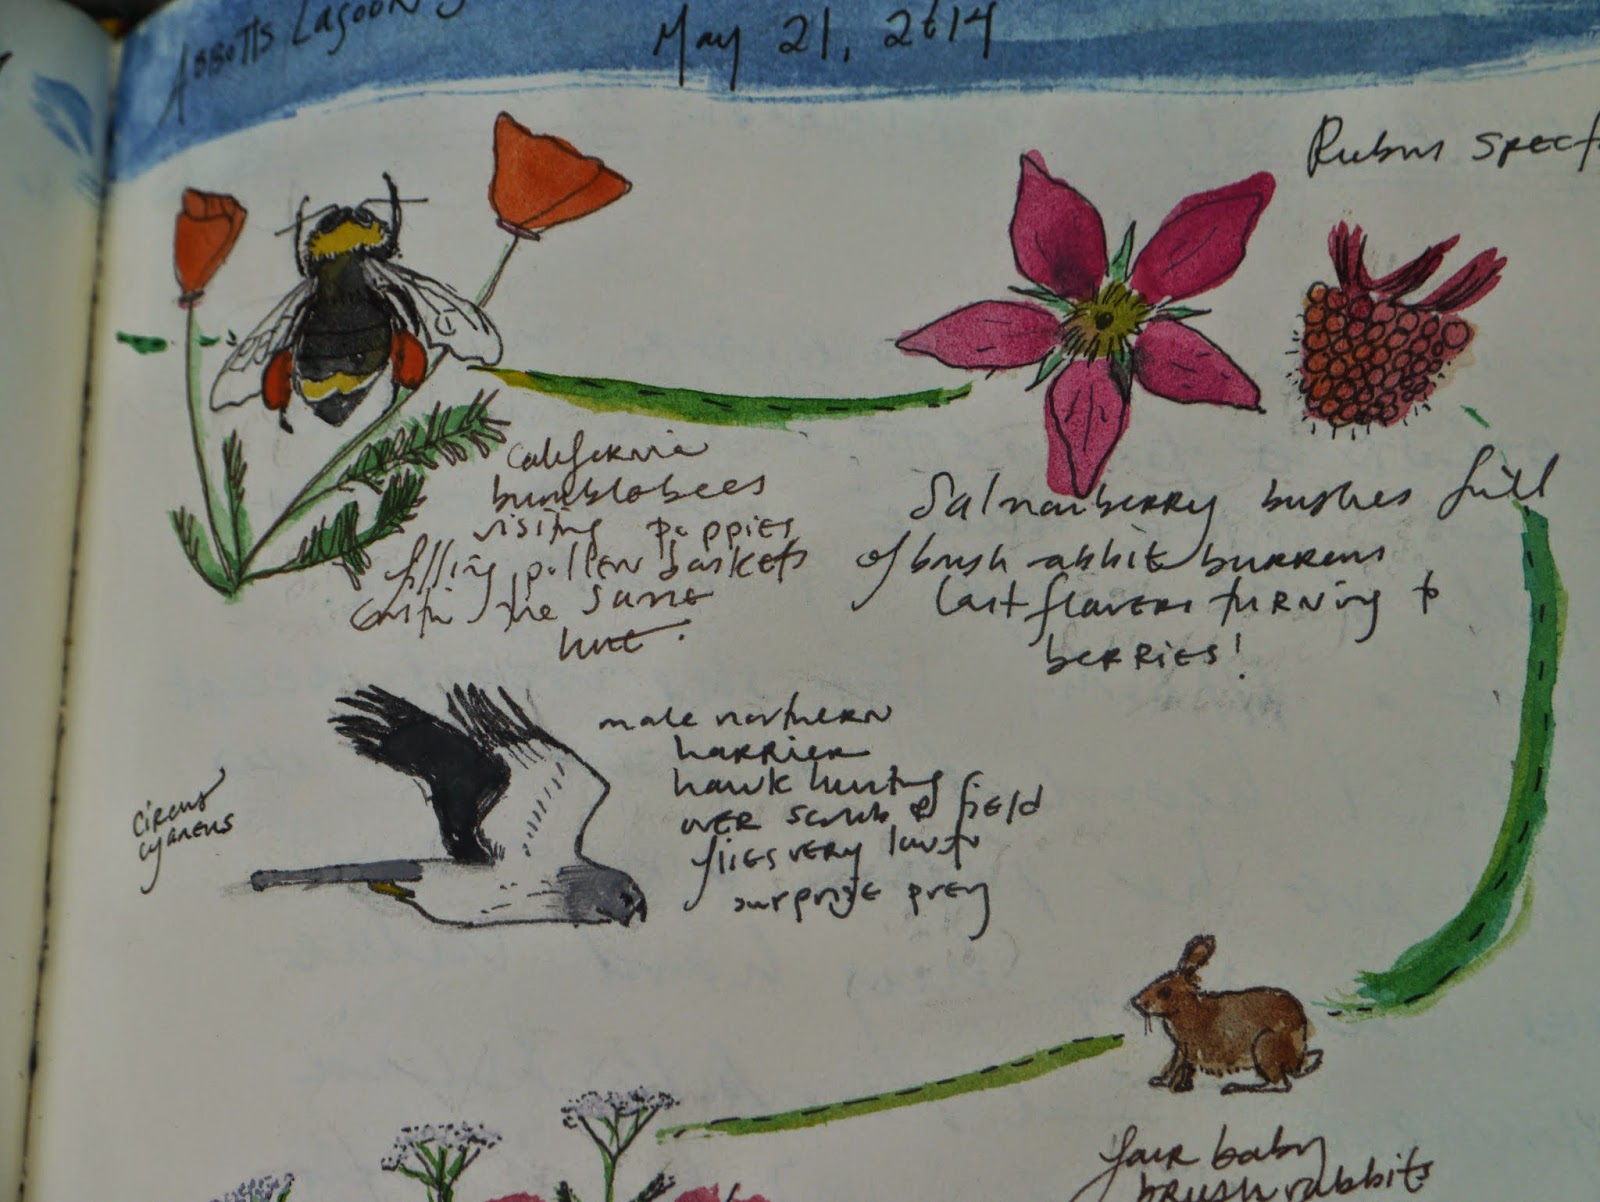 Abbotts Lagoon
May 21, 2014
Rubus spect
California
bumblebees
visiting poppies
filling pollen baskets
with the same
hue!
Salmonberry bushes full
of brush rabbit burrows
last flowers turning to
berries!
male northern
harrier
hawk hunting
over scrub & field
flies very low to
surprise prey
circus
cyaneus
four baby
brush rabbits